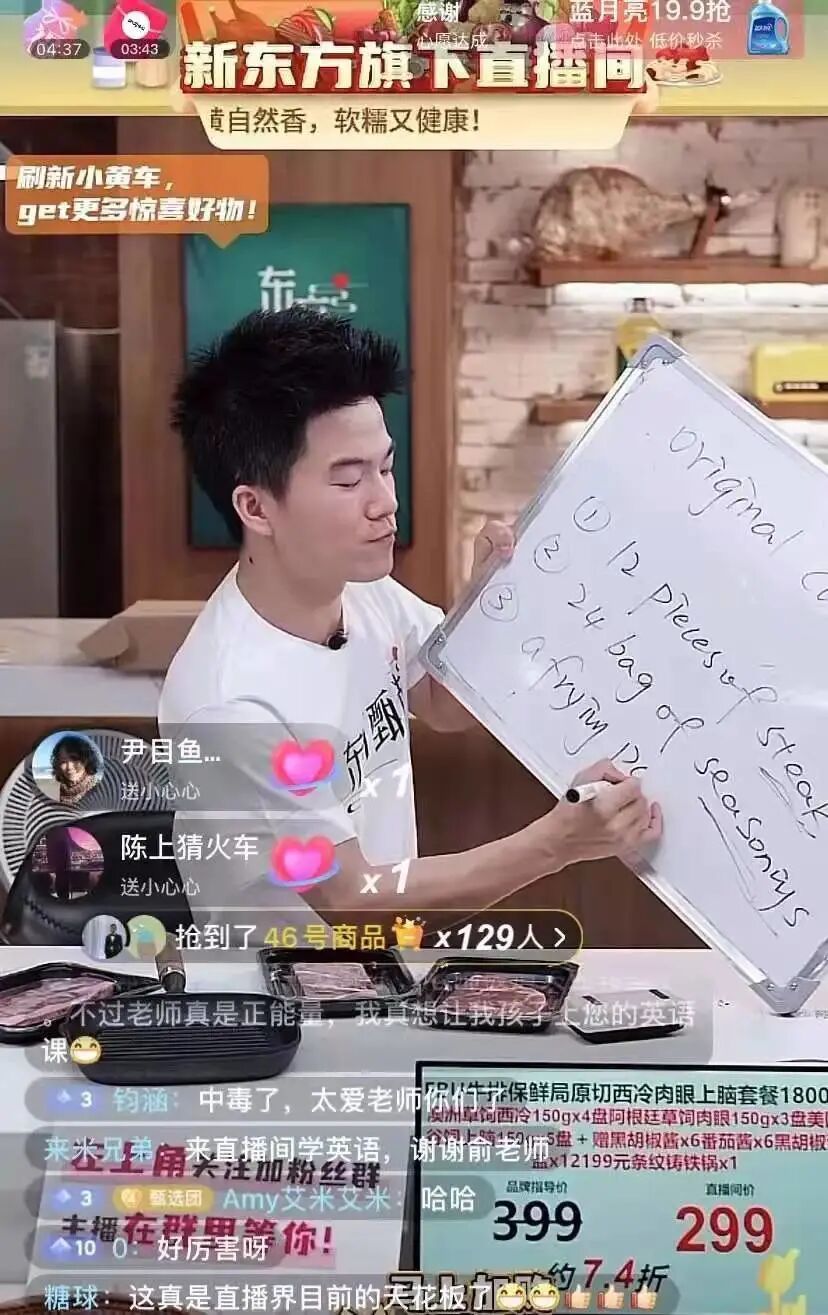 04:37
03:43
感谢
心愿达成
蓝月亮19.9抢
点击此处 低价秒杀
新东方旗下直播间
自然香，软糯又健康！
刷新小黄车，
get更多惊喜好物！
东方
original
① 12 pieces of steak
② 24 bag of seasonings
③ a frying
甄
尹目鱼...
送小心心
x1
陈上猜火车
送小心心
x1
抢到了46号商品 x129人 >
。不过老师真是正能量，我真想让我孩子上您的英语
课😁
3 钧涵：中毒了，太爱老师你们了
来米兄弟：来直播间学英语，谢谢俞老师
3 甄选团 Amy艾米艾米：哈哈
10 0：好厉害呀
糖球：这真是直播界目前的天花板了😁😁👍👍👍
左上角关注加粉丝群
主播在群里等你！
牛排保鲜局原切西冷肉眼上脑套餐1800
澳洲草饲西冷150gx4盘阿根廷草饲肉眼150gx3盘美国
谷饲上脑150g 5盘 + 赠黑胡椒酱x6番茄酱x6黑胡椒
盐x12199元条纹铸铁锅x1
品牌指导价
399
直播间价
299
约7.4折